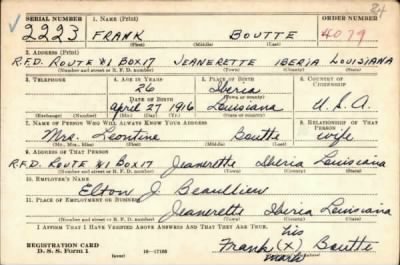 24
SERIAL NUMBER 1. NAME (Print) ORDER NUMBER
2223 FRANK BOUTTE 4079
(First) (Middle) (Last)
2. ADDRESS (Print)
R.F.D. ROUTE #1 BOX 17 JEANERETTE IBERIA LOUISIANA
(Number and street or R. F. D. number) (Town) (County) (State)
3. TELEPHONE 4. AGE IN YEARS 5. PLACE OF BIRTH 6. COUNTRY OF CITIZENSHIP
26 Iberia
DATE OF BIRTH (Town or county)
April 27 1916 Louisiana U.S.A.
(Mo.) (Day) (Yr.) (State or country)
7. NAME OF PERSON WHO WILL ALWAYS KNOW YOUR ADDRESS 8. RELATIONSHIP OF THAT PERSON
Mrs. Leontine Boutte wife
(Mr., Mrs., Miss) (First) (Middle) (Last)
9. ADDRESS OF THAT PERSON
R.F.D. Route #1 Box 17 Jeanerette Iberia Louisiana
(Number and street or R. F. D. number) (Town) (County) (State)
10. EMPLOYER'S NAME
Elton J. Beaullieu
11. PLACE OF EMPLOYMENT OR BUSINESS
Jeanerette Iberia Louisiana
(Number and street or R. F. D. number) (Town) (County) (State)
I AFFIRM THAT I HAVE VERIFIED ABOVE ANSWERS AND THAT THEY ARE TRUE.
his
REGISTRATION CARD Frank (X) Boutte
D. S. S. Form 1 (over) 16—17105 mark